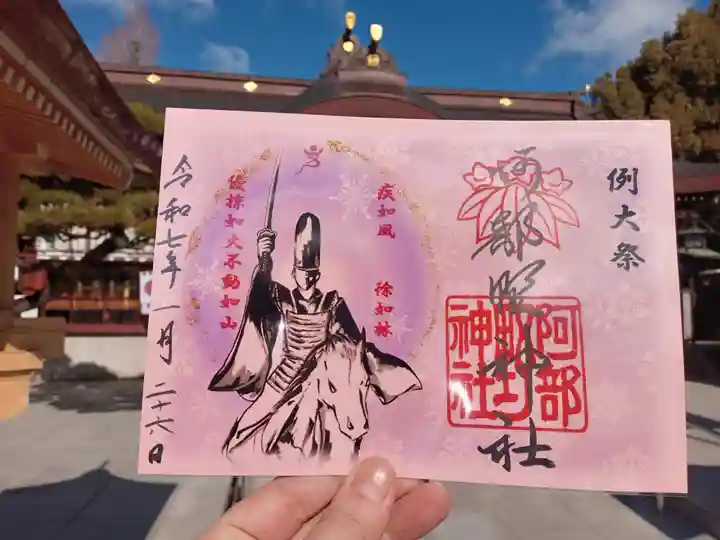 例大祭
阿部野神社
阿部
神社
疾如風
徐如林
侵掠如火不動如山
令和七年一月二十六日